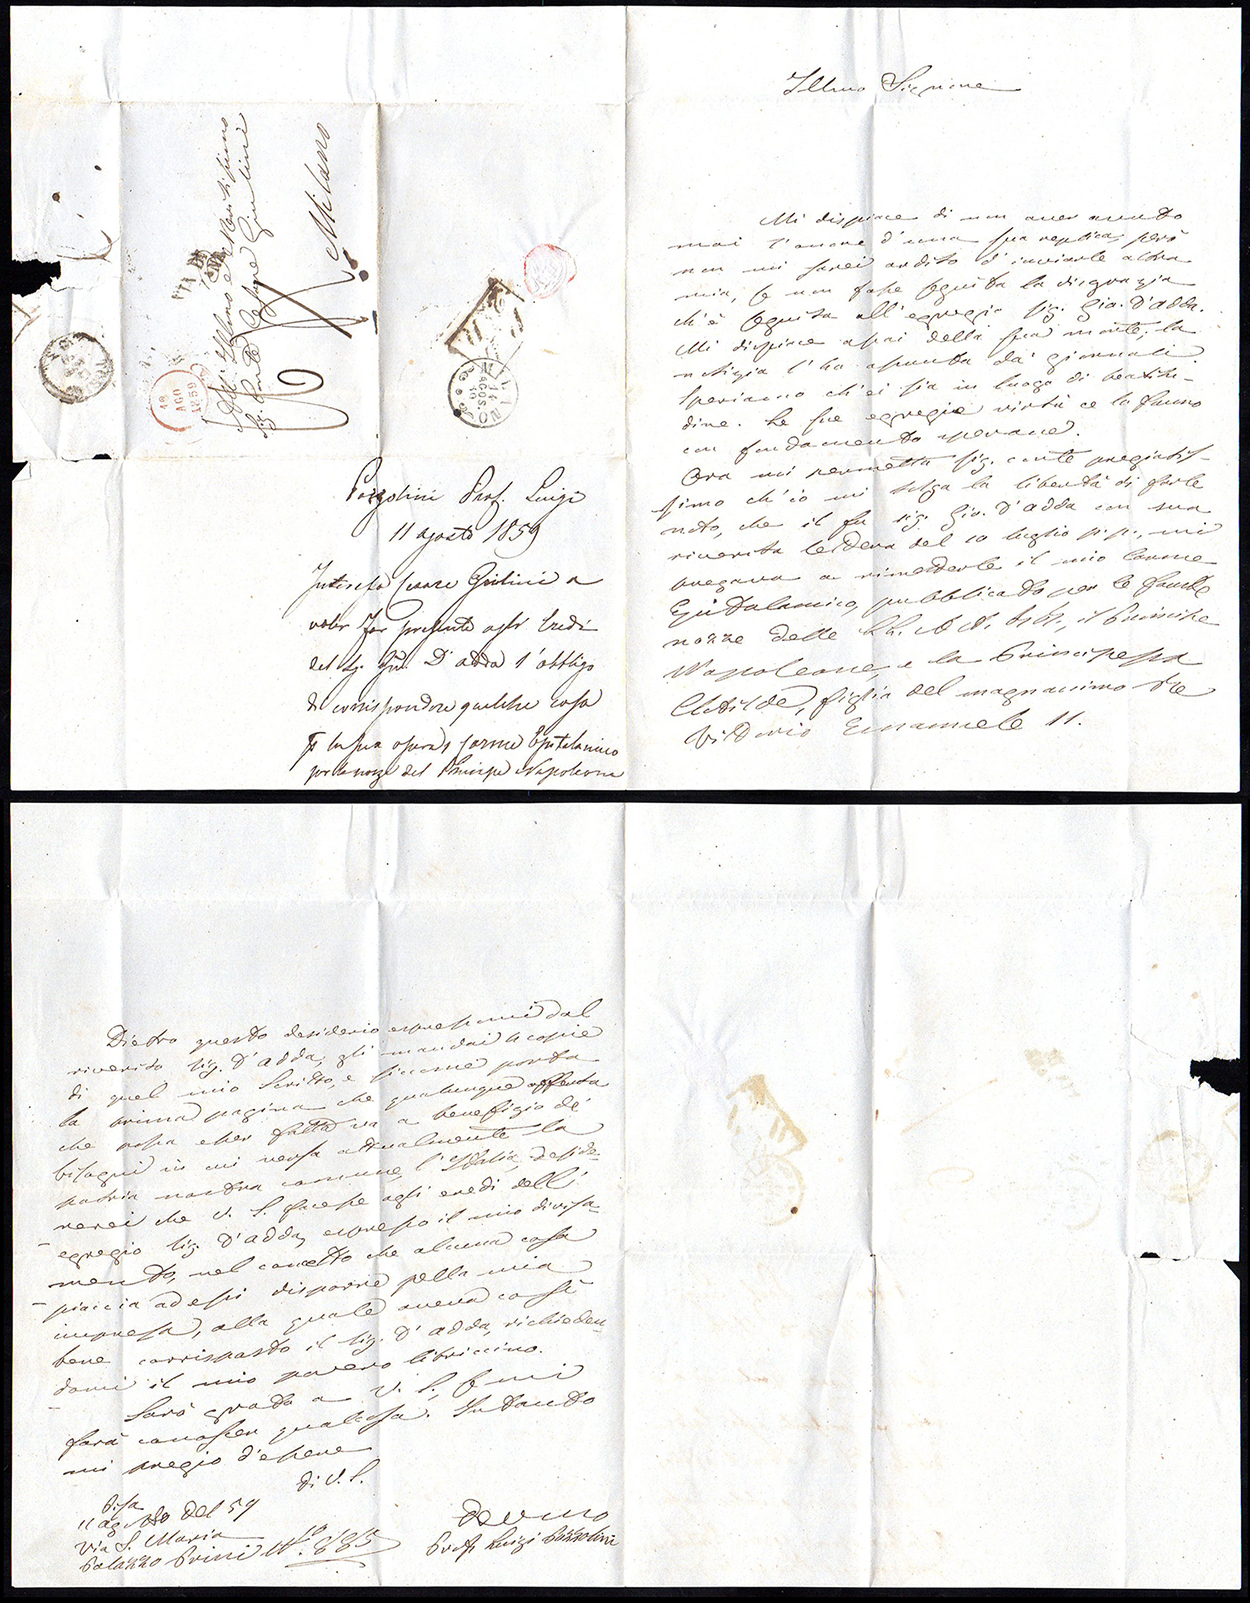 Illmo Signore
Mi dispiace di non aver avuto
mai l'onore d'una sua replica, però
non mi sarei ardito d'inviarle altra
mia, se non fosse seguita la disgrazia
ch'è seguita all'egregio Sig. Gio. d'Adda.
Mi dispiace assai della sua morte; la
notizia l'ho saputa da' giornali.
Speriamo ch'ei sia in luogo di beatitu-
dine. Le sue egregie virtù ce lo fanno
con fondamento sperare.
Ora mi permetta Sig. conte pregiatis-
simo ch'io mi tolga la libertà di farle
noto, che il fu Sig. Gio. D'Adda con sua
riverita lettera del 10 luglio p.p., mi
pregava a rimetterle il mio Carme
Epitalamico, pubblicato per le fauste
nozze delle LL. AA. II., il Principe
Napoleone, e la Principessa
Clotilde, figlia del magnanimo Re
Vittorio Emanuele II.
All' Illmo e Nobilissimo
Sig. Conte Cesare Giulini
Milano
VIA DI
18
AGO
1859
TORINO
14
AGOS.
Pozzolini Prof. Luigi
11 agosto 1859
Interessa Cesare Giulini a
voler far presente agli Eredi
del Sig. Gio. D'Adda l'obbligo
di corrispondere qualche cosa
p la sua opera, Carme Epitalamico
per le nozze del Principe Napoleone
Dietro questo desiderio espressomi dal
riverito Sig. D'Adda, gli mandai 4 copie
di quel mio Scritto, e siccome porta
la prima pagina che qualunque offerta
che possa esser fatta va a benefizio de'
bisogni in cui versa attualmente la
patria nostra comune l'Italia, deside-
rerei che V. S. facesse agli eredi dell'
egregio Sig. D'Adda, espresso il mio divisa-
mento, nel concetto che alcuna cosa
piaccia ad essi disporre pella mia
impresa, alla quale aveva così
bene corrisposto il Sig. D'Adda, richieden-
domi il mio povero libriccino.
Sarò grato a V. S., se mi
farà conoscer qualcosa. Intanto
mi pregio d'essere
Di V. S.
Pisa
11 agosto del 59
Via S. Maria
Palazzo Prini No. 885
Devmo
Prof. Luigi Pozzolini